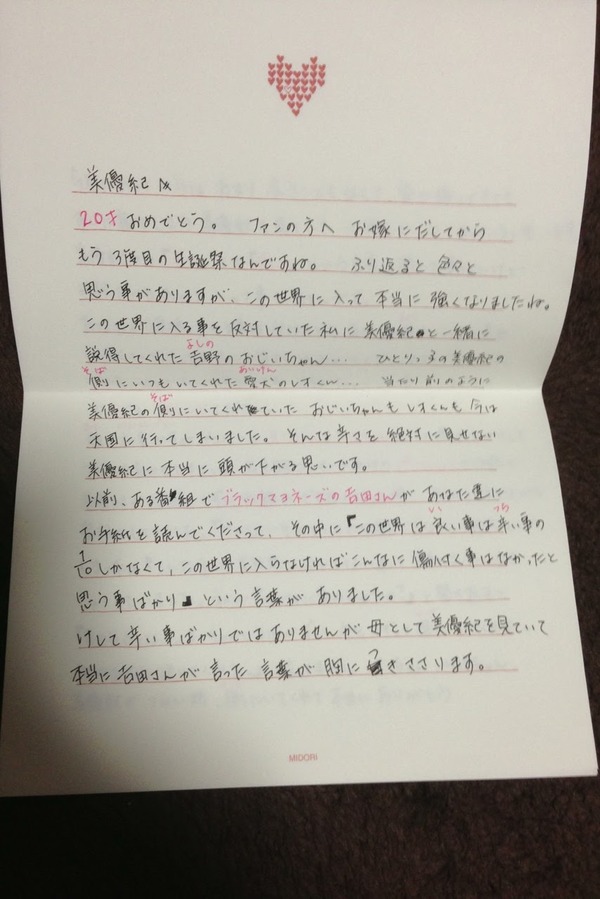 美優紀へ
20才おめでとう。 ファンの方へ お嫁にだしてから
もう3度目の生誕祭なんですね。 ふり返ると 色々と
思う事がありますが、この世界に入って 本当に 強くなりましたね。
この世界に入る事を反対していた私に 美優紀と一緒に
よしの
説得してくれた 吉野のおじいちゃん… ひとりっ子の美優紀の
そば あいけん
側にいつもいてくれた 愛犬のレオくん… 当たり前のように
そば
美優紀の側りにいてくれていた おじいちゃんもレオくんも 今は
天国に行ってしまいました。そんな辛さを 絶対に見せない
美優紀に本当に 頭が下がる思いです。
以前、ある番組で ブラックマヨネーズの吉田さんが あなた達に
い つら
お手紙を 読んでくださって、その中に「この世界は 良い事は辛い事の
1/10しかなくて、この世界に入らなければこんなに 傷付く事はなかったと
思う事ばかり」という言葉が ありました。
けして 辛い事ばかりでは ありませんが 母として 美優紀を見ていて
本当に 吉田さんが 言った 言葉が 胸に つきささります。
MIDORI